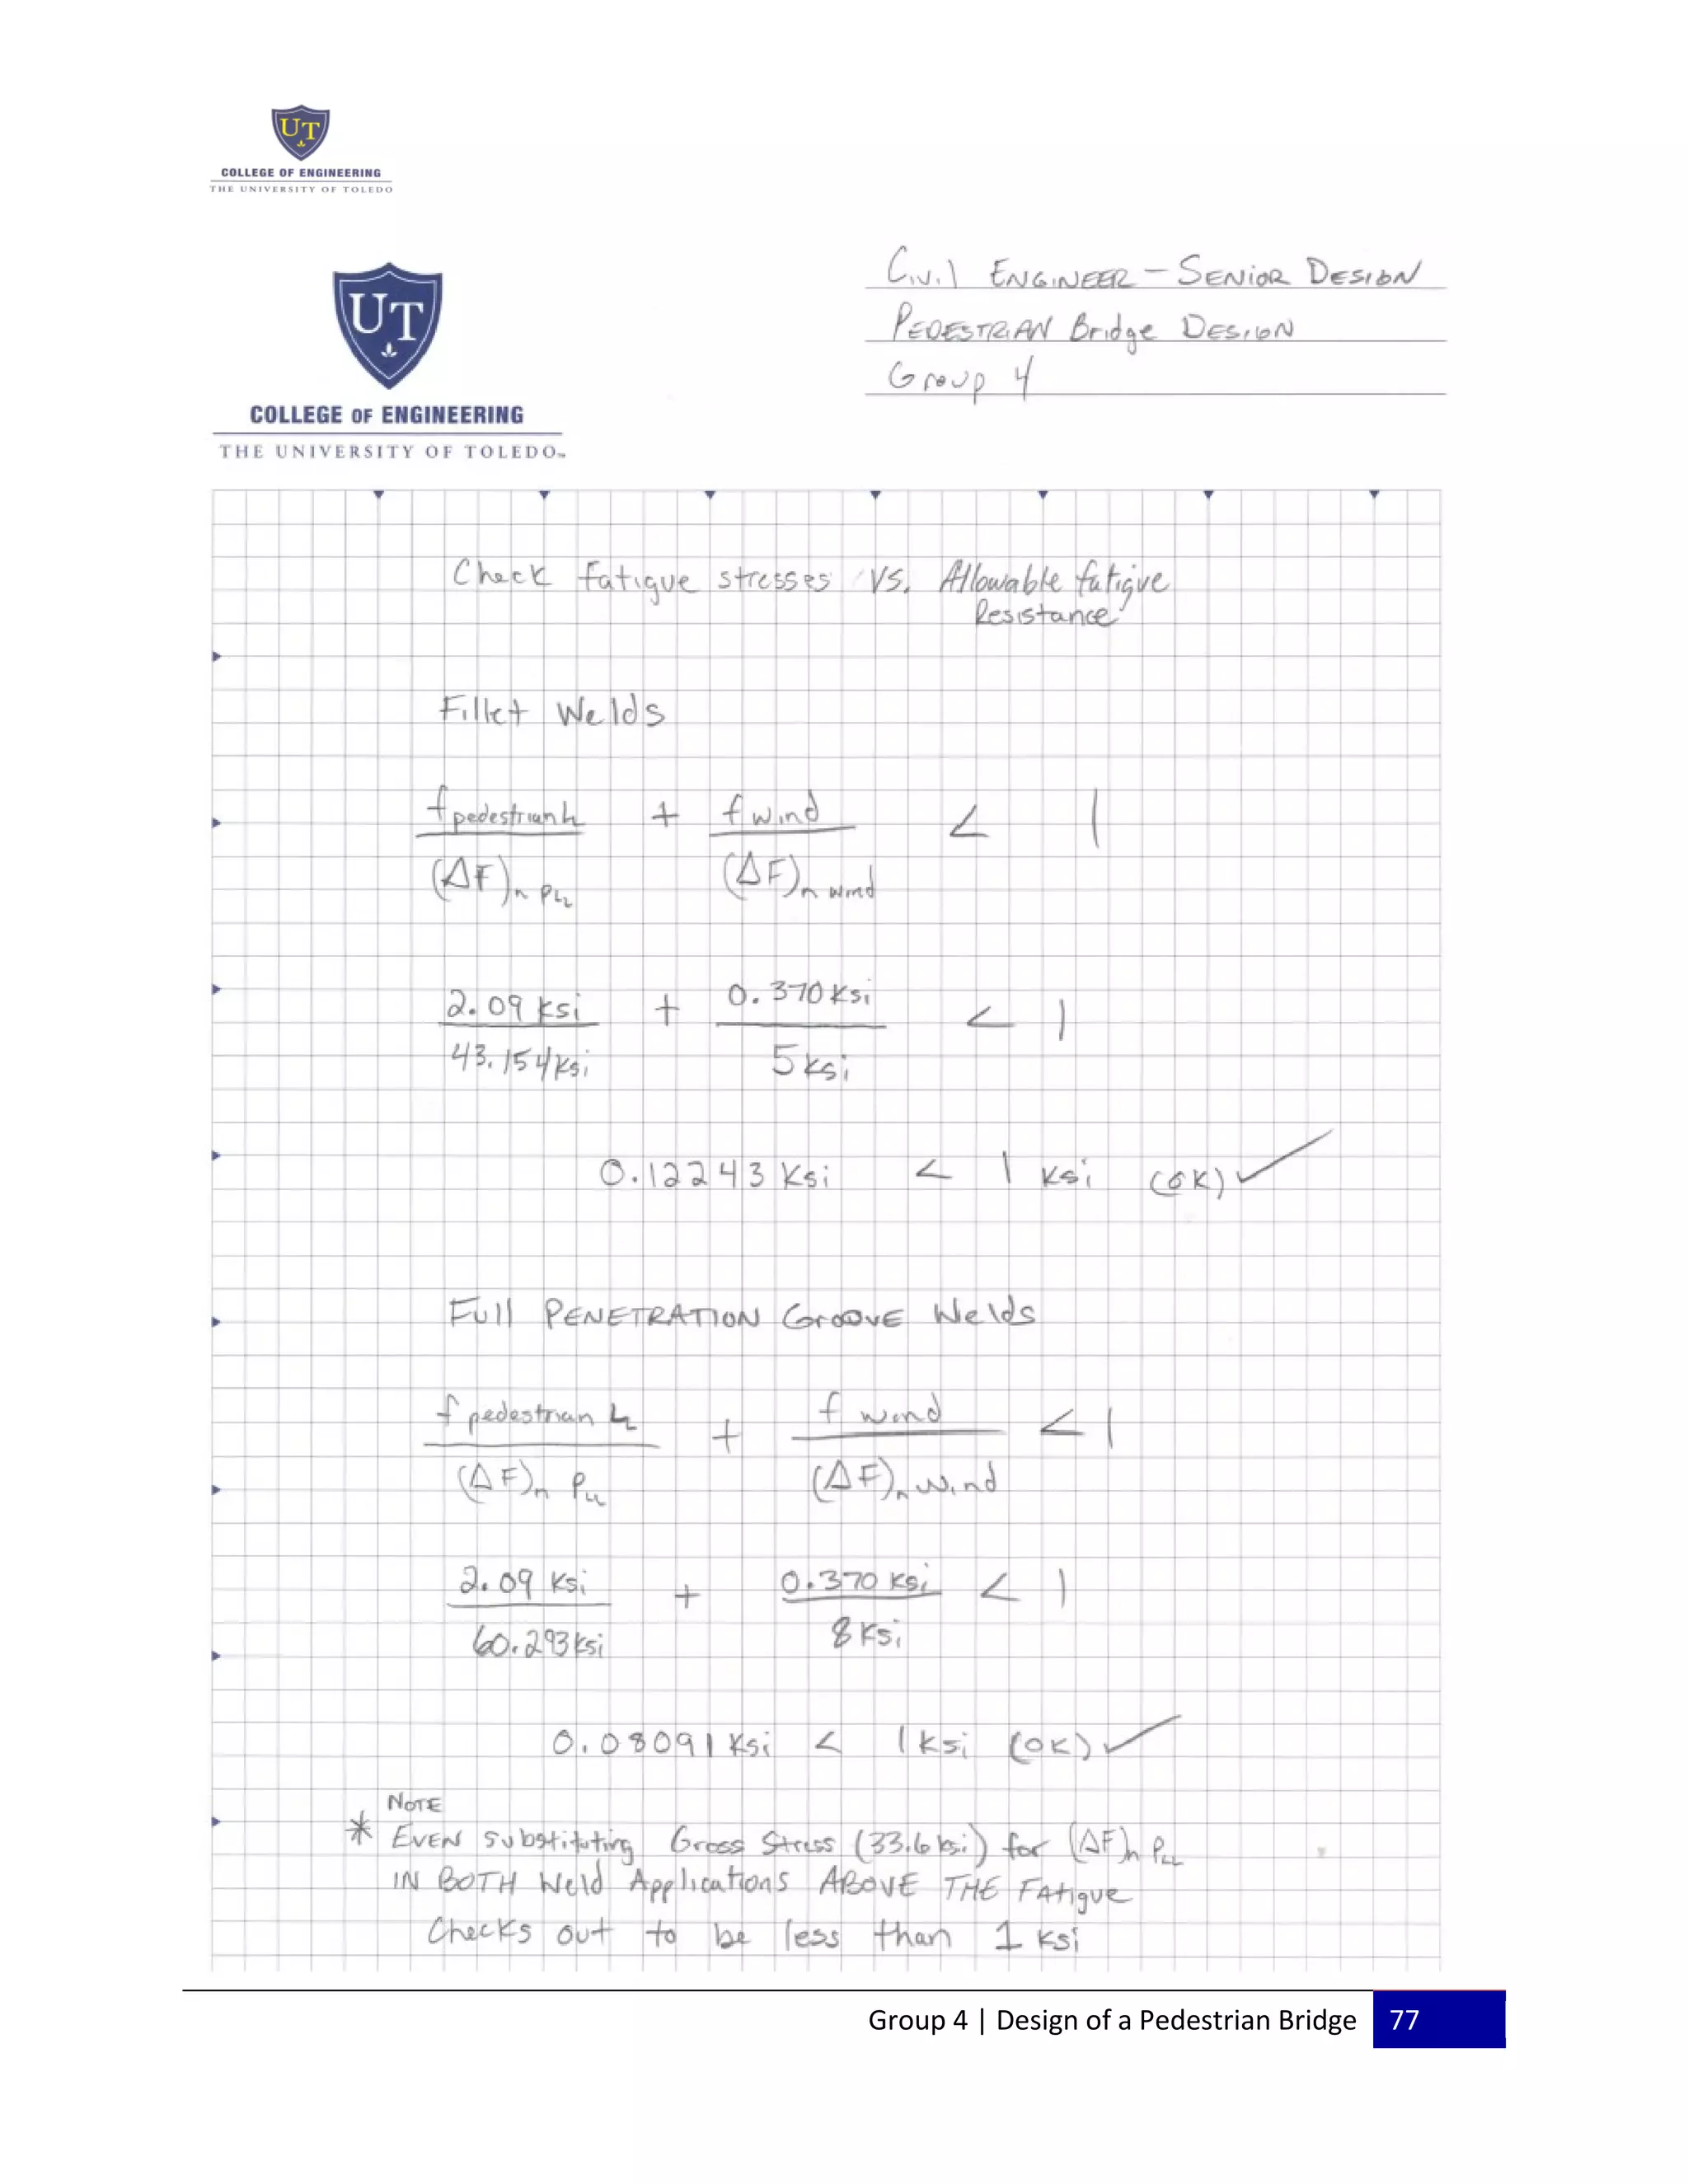 UT
COLLEGE OF ENGINEERING
THE UNIVERSITY OF TOLEDO
Civil ENGINEER - SENIOR DESIGN
PEDESTRIAN Bridge DESIGN
Group 4
UT
COLLEGE OF ENGINEERING
THE UNIVERSITY OF TOLEDO™
Check fatigue stresses vs. Allowable fatigue
Resistance
Fillet Welds
f pedestrian LL + f wind < 1
(ΔF)n PLL (ΔF)n wind
2.09 ksi + 0.370 ksi < 1
43.154 ksi 5 ksi
0.12243 Ksi < 1 ksi (OK) ✓
Full PENETRATION GROOVE Welds
f pedestrian LL + f wind < 1
(ΔF)n PLL (ΔF)n wind
2.09 ksi + 0.370 ksi < 1
60.293 ksi 8 ksi
0.08091 Ksi < 1 ksi (OK) ✓
NOTE
* EVEN Substituting Gross Stress (33.6 ksi) for (ΔF)n PLL
IN BOTH Weld Applications ABOVE THE FAtigue
Checks out to be less than 1 ksi
Group 4 | Design of a Pedestrian Bridge 77